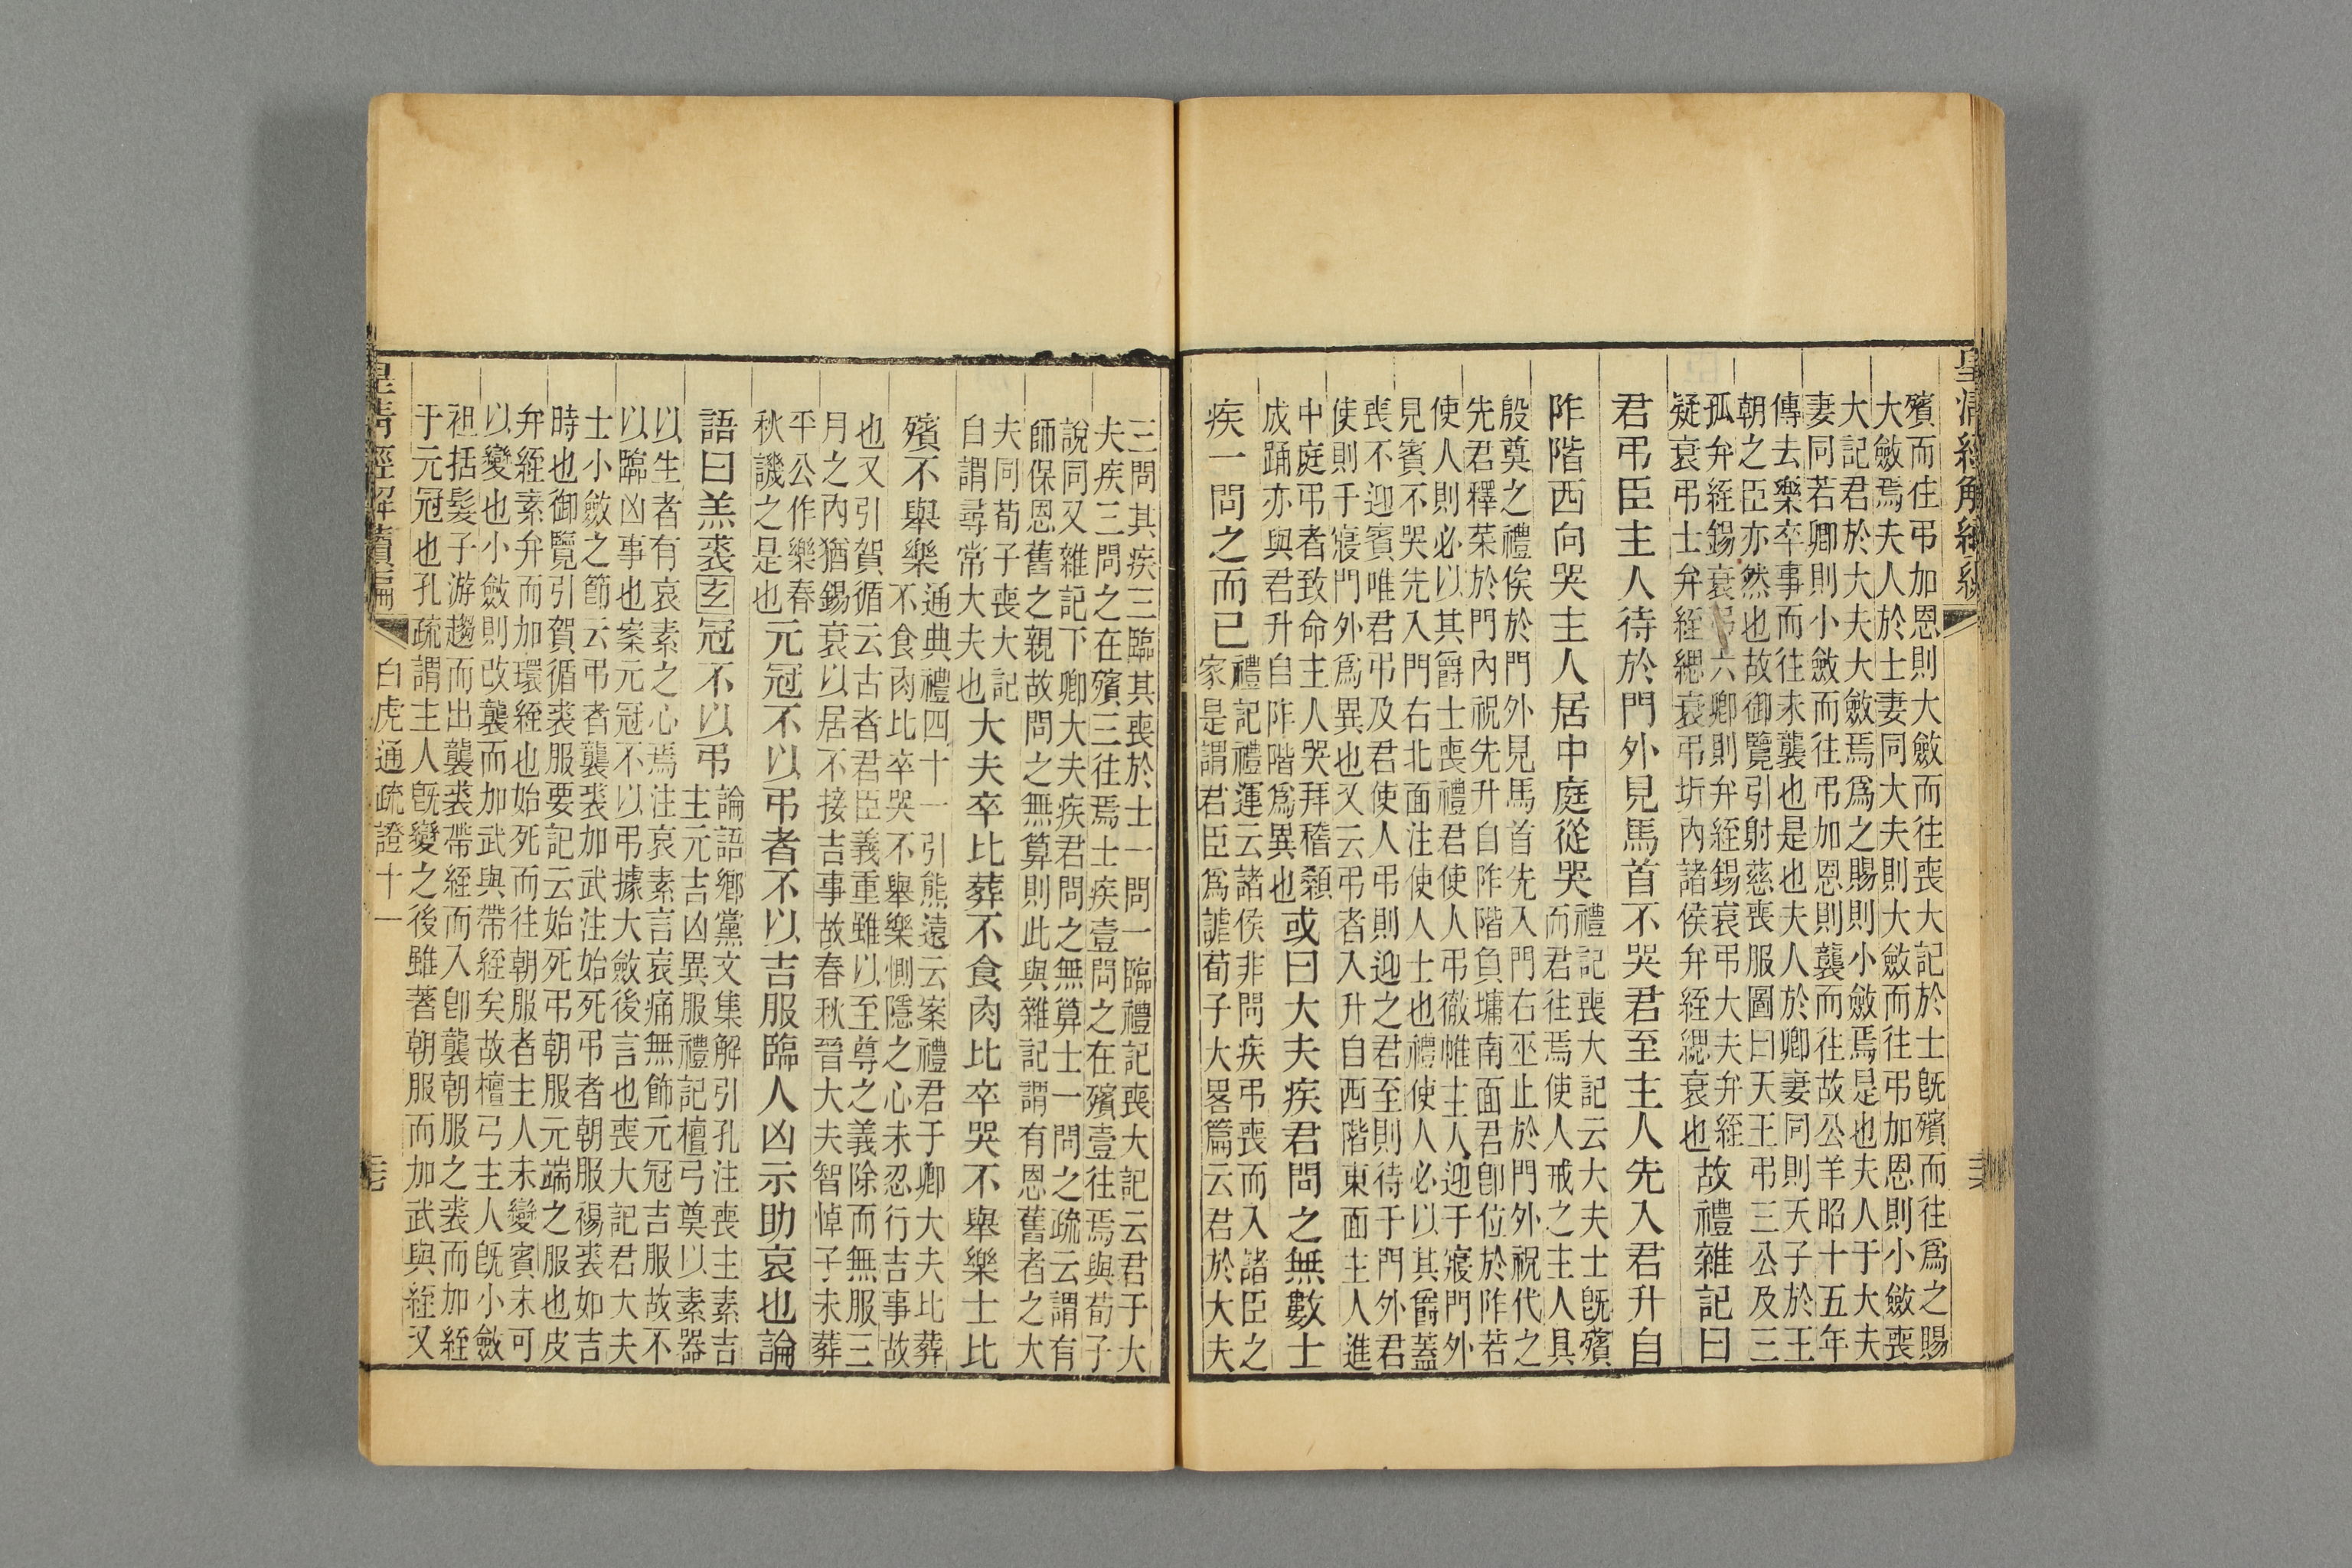 皇清經解續編
殯而往弔加恩則大斂而往喪大記於士旣殯而往爲之賜
大斂焉夫人於士妻同大夫則大斂而往弔加恩則小斂喪
大記君於大夫大斂焉爲之賜則小斂焉是也夫人于大夫
妻同若卿則小斂而往弔加恩則襲而往故公羊昭十五年
傳去樂卒事而往未襲也是也夫人於卿妻同則天子於王
朝之臣亦然也故御覽引射慈喪服圖曰天王弔三公及三
孤弁絰錫衰弔六卿則弁絰錫衰弔大夫弁絰
疑衰弔士弁絰緦衰弔圻內諸侯弁絰緦衰也
故禮雜記曰
君弔臣主人待於門外見馬首不哭君至主人先入君升自
阼階西向哭主人居中庭從哭
禮記喪大記云大夫士旣殯
而君往焉使人戒之主人具
殷奠之禮俟於門外見馬首先入門右巫止於門外祝代之
先君釋菜於門內祝先升自阼階負墉南面君卽位於阼若
使人則必以其爵士喪禮君使人弔徹帷主人迎于寢門外
見賓不哭先入門右北面注使人士也禮使人必以其爵蓋
喪不迎賓唯君弔及君使人弔則迎之君至則待于門外君
使則于寢門外爲異也又云弔者入升自西階東面主人進
中庭弔者致命主人哭拜稽顙
成踊亦與君升自阼階爲異也
或曰大夫疾君問之無數士
疾一問之而已
禮記禮運云諸侯非問疾弔喪而入諸臣之
家是謂君臣爲謔荀子大畧篇云君於大夫
三問其疾三臨其喪於士一問一臨禮記喪大記云君于大
夫疾三問之在殯三往焉士疾壹問之在殯壹往焉與荀子
說同又雜記下卿大夫疾君問之無算士一問之疏云謂有
師保恩舊之親故問之無算則此與雜記謂有恩舊者之大
夫同荀子喪大記
自謂尋常大夫也
大夫卒比葬不食肉比卒哭不舉樂士比
殯不舉樂
通典禮四十一引熊遠云案禮君于卿大夫比葬
不食肉比卒哭不舉樂惻隱之心未忍行吉事故
也又引賀循云古者君臣義重雖以至尊之義除而無服三
月之內猶錫衰以居不接吉事故春秋晉大夫智悼子未葬
平公作樂春
秋譏之是也
元冠不以弔者不以吉服臨人凶示助哀也論
語曰羔裘玄冠不以弔
論語鄉黨文集解引孔注喪主素吉
主元吉凶異服禮記檀弓奠以素器
以生者有哀素之心焉注哀素言哀痛無飾元冠吉服故不
以臨凶事也案元冠不以弔據大斂後言也喪大記君大夫
士小斂之節云弔者襲裘加武注始死弔者朝服裼裘如吉
時也御覽引賀循裘服要記云始死弔朝服元端之服也皮
弁絰素弁而加環絰也始死而往朝服者主人未變賓未可
以變也小斂則改襲而加武與帶絰矣故檀弓主人旣小斂
袒括髮子游趨而出襲裘帶絰而入卽襲朝服之裘而加絰
于元冠也孔疏謂主人旣變之後雖著朝服而加武與絰又
皇清經解續編
白虎通疏證十一